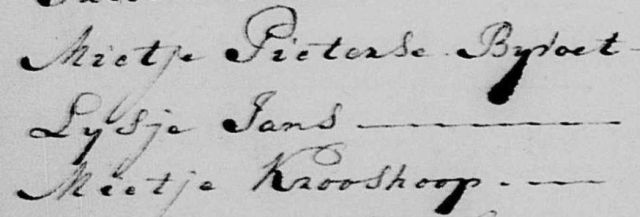 Mietje Pieterse Byvoet
Lysje Jans
Mietje Krooshoop.